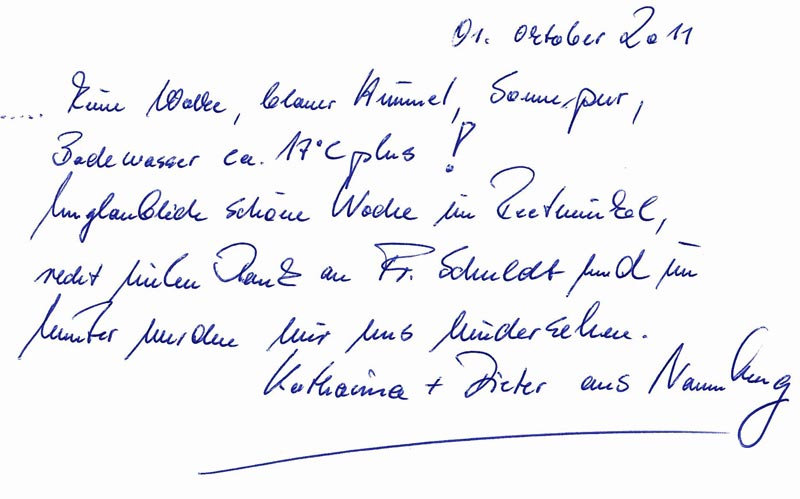 01. Oktober 2011
.... Keine Wolke, blauer Himmel, Sonne pur,
Badewasser ca. 17°C plus !
Unglaublich schöne Woche im Reetwinkel,
recht vielen Dank an Fr. Schuldt und im
Winter werden wir uns wiedersehen.
Katharina + Dieter aus Naumburg